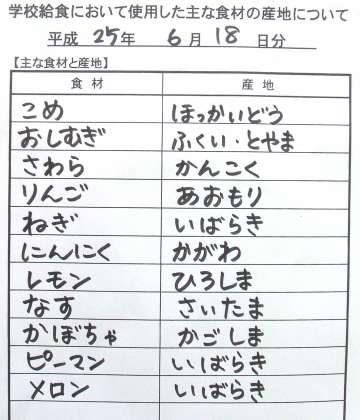 学校給食において使用した主な食材の産地について
平成 25年 6月 18日分
【主な食材と産地】
食材 産地
こめ ほっかいどう
おしむぎ ふくい・とやま
さわら かんこく
りんご あおもり
ねぎ いばらき
にんにく かがわ
レモン ひろしま
なす さいたま
かぼちゃ かごしま
ピーマン いばらき
メロン いばらき